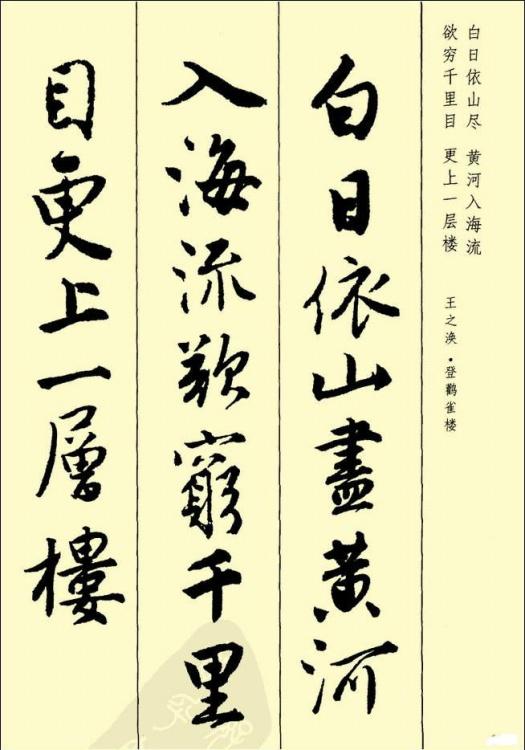 白日依山尽 黄河入海流
欲穷千里目 更上一层楼
王之涣·登鹳雀楼
白日依山盡黄河
入海流欲窮千里
目更上一層樓